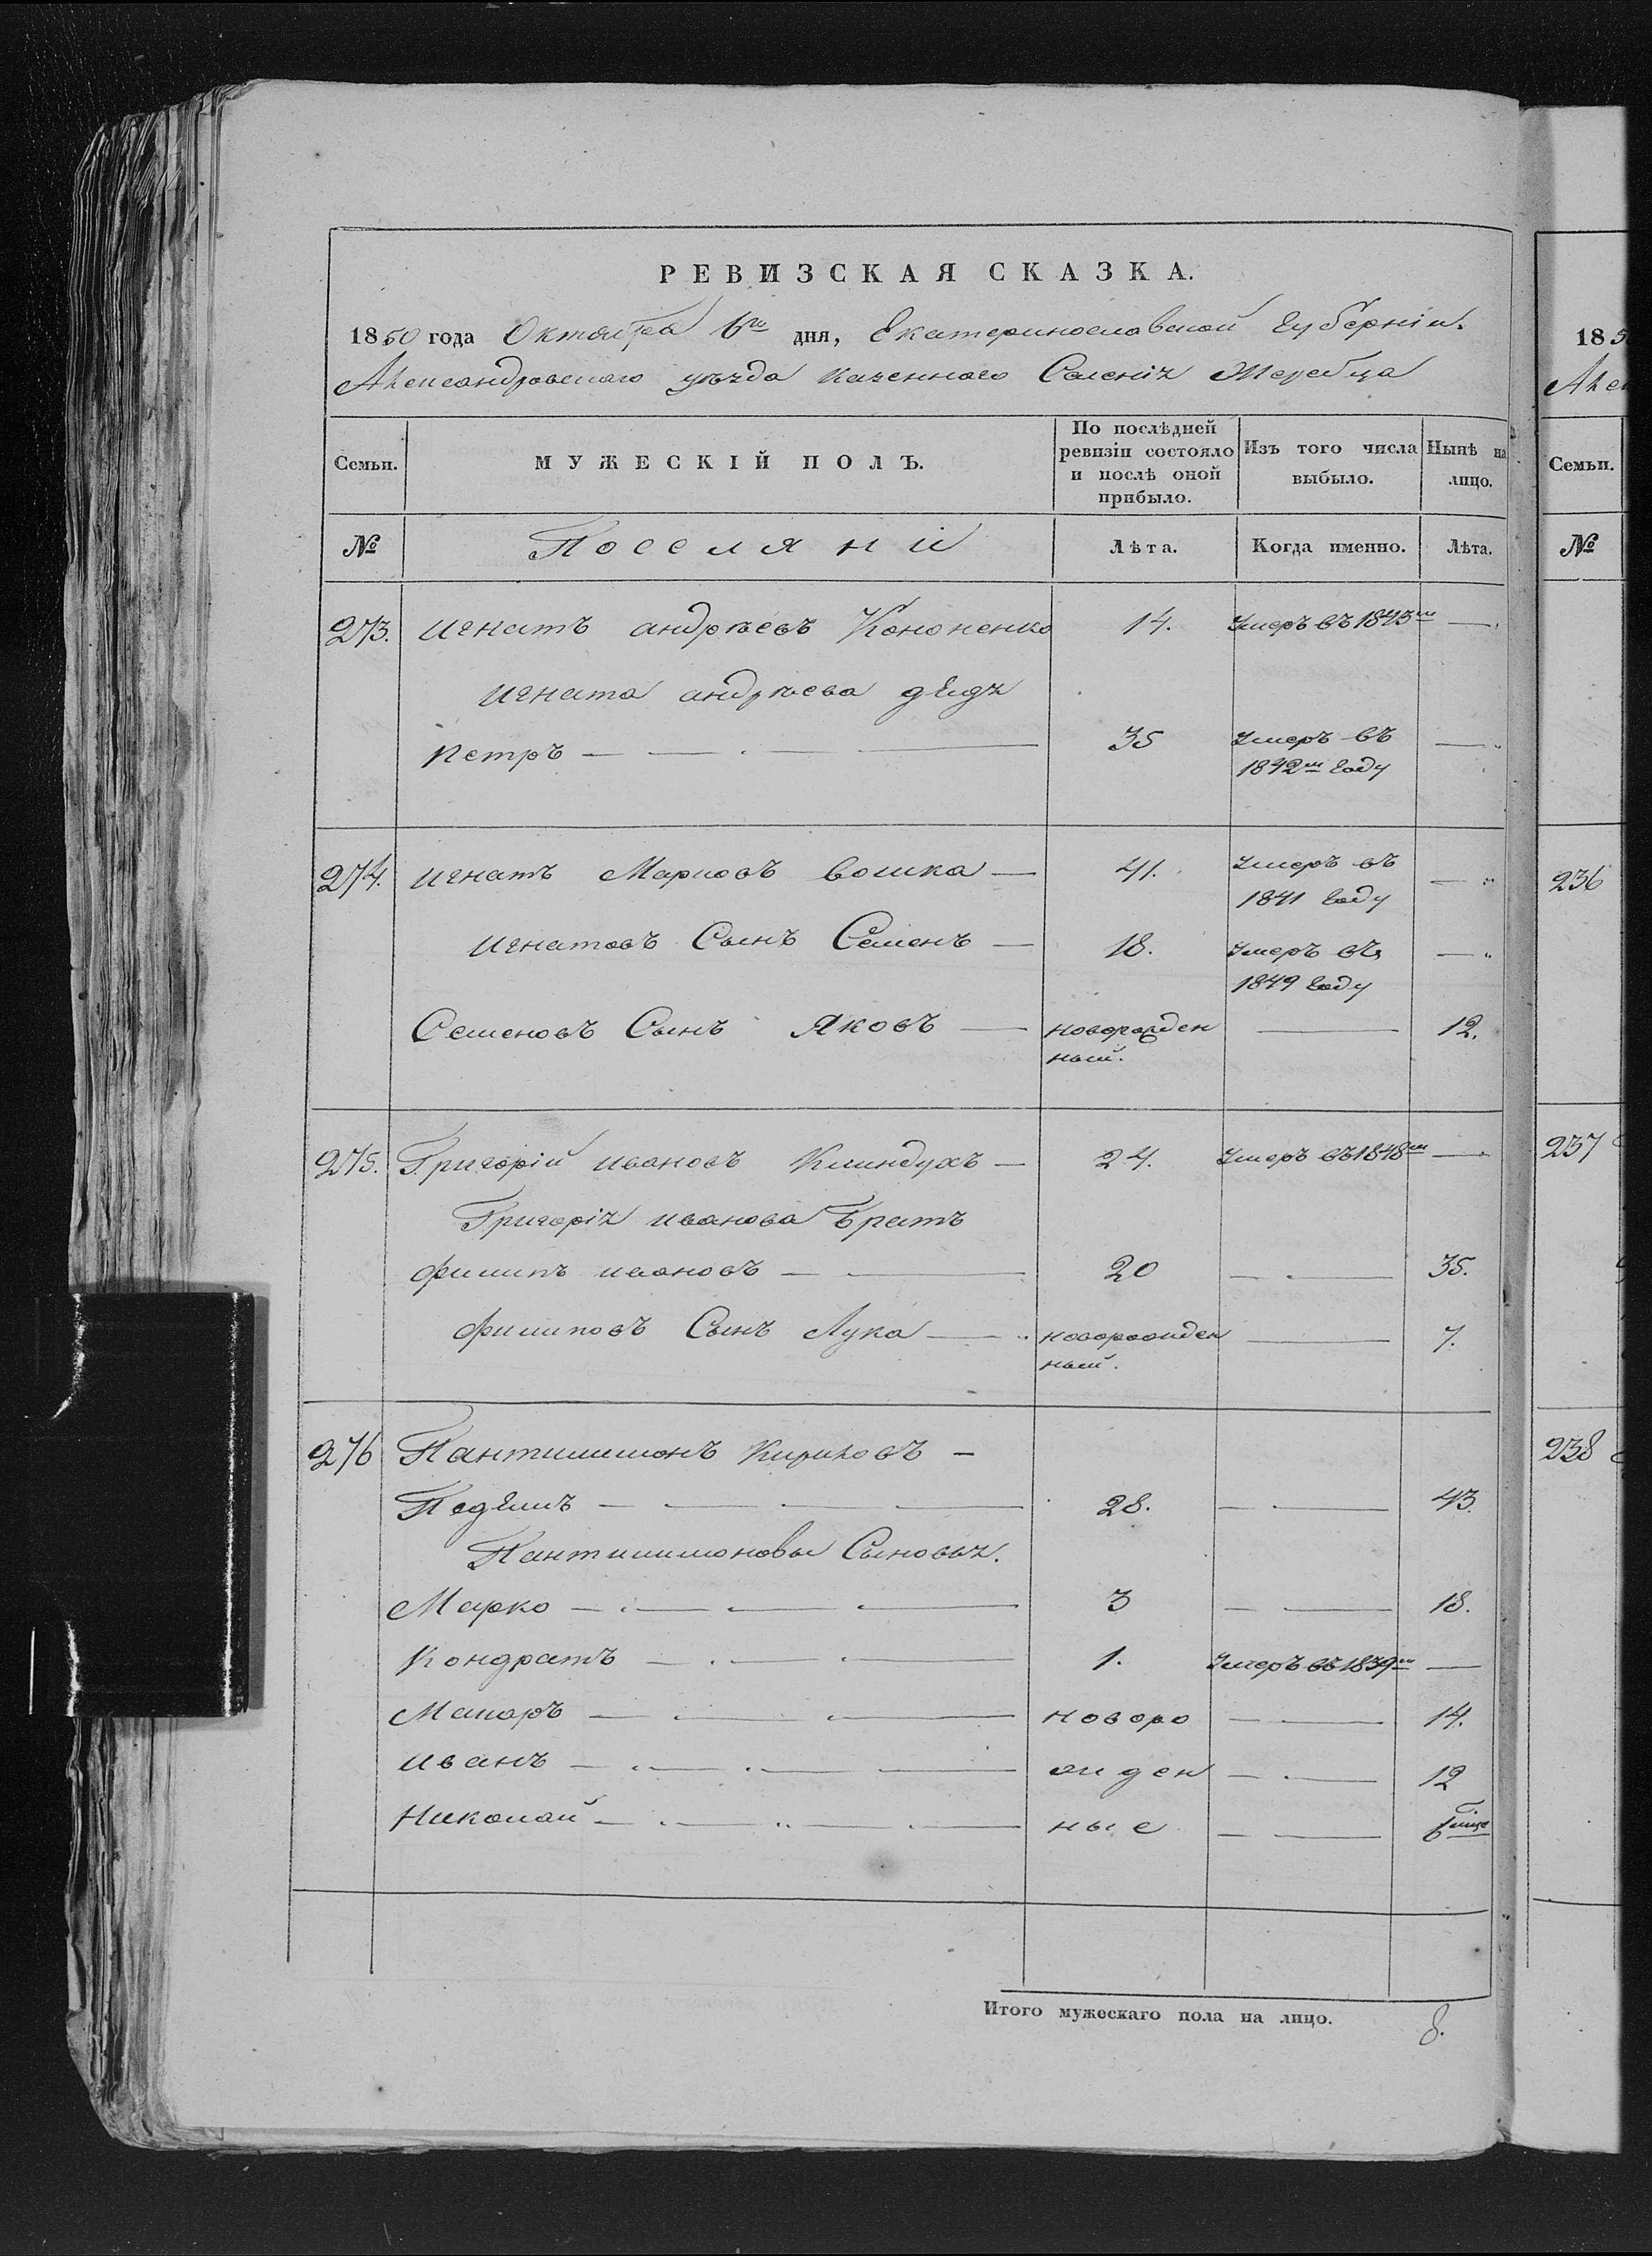 РЕВИЗСКАЯ СКАЗКА.
1850 года Октября 6го дня, Екатеринославской Губерніи.
Александровскаго уѣзда Казеннаго Селенія Жеребца
Семьи. МУЖЕСКІЙ ПОЛЪ. По послѣдней ревизіи состояло и послѣ оной прибыло. Изъ того числа выбыло. Нынѣ на лицо.
№ Поселяни Лѣта. Когда именно. Лѣта.
273. Игнатъ андрѣевъ Кононенко 14. Умеръ въ 1843м —
Игната андрѣева дядя
Петръ — 35 Умеръ въ
1842м Году —
274. Игнатъ Марковъ Вошка — 41. Умеръ въ
1841 Году —
Игнатовъ Сынъ Семенъ — 18. Умеръ въ
1849 Году —
Семеновъ Сынъ Яковъ — новорожден
ный. — 12.
275. Григорій ивановъ Клиндухъ — 24. Умеръ въ 1848м —
Григорія иванова Братъ
Филипъ ивановъ — 20 — 35.
Филиповъ Сынъ Лука — новорожден
ный. — 7.
276 Пантилимонъ Кириловъ —
— 28. — 43.
Пантилимоновы Сыновья.
Марко — 3 — 18.
Кондратъ — 1. Умеръ въ 1839м —
Макаръ — новоро — 14.
иванъ — жден — 12
Николай — ные —
Итого мужескаго пола на лицо. 8.
185
Але
Семьи.
№
236
237
238